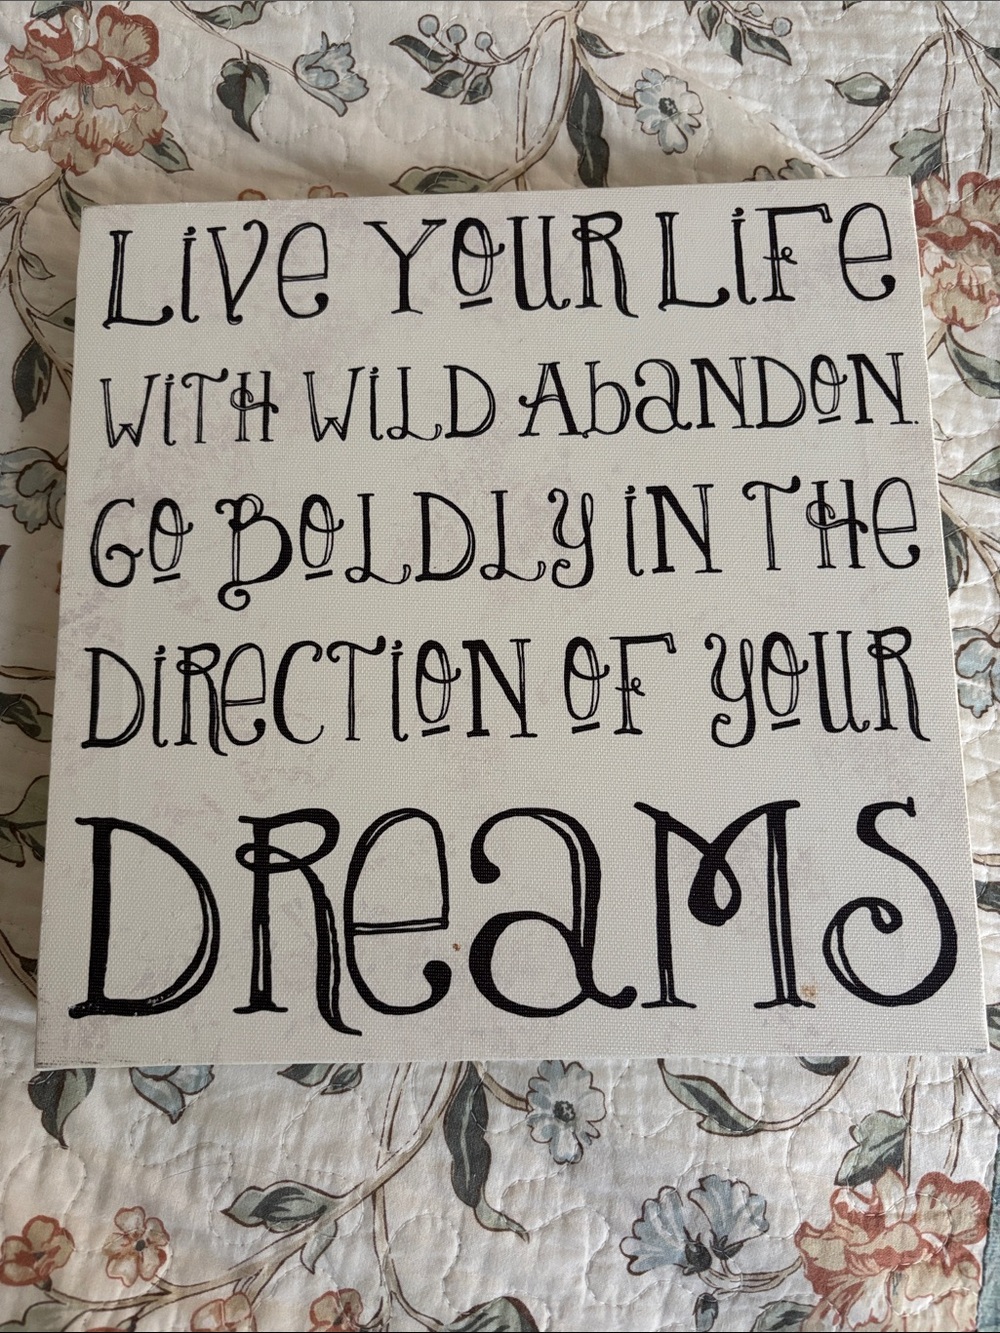 LiVe YOUR LiFe
WiTH WiLD AbaNDON.
GO BOLDLY iN THe
DiReCTiON OF YOUR
DReaMS